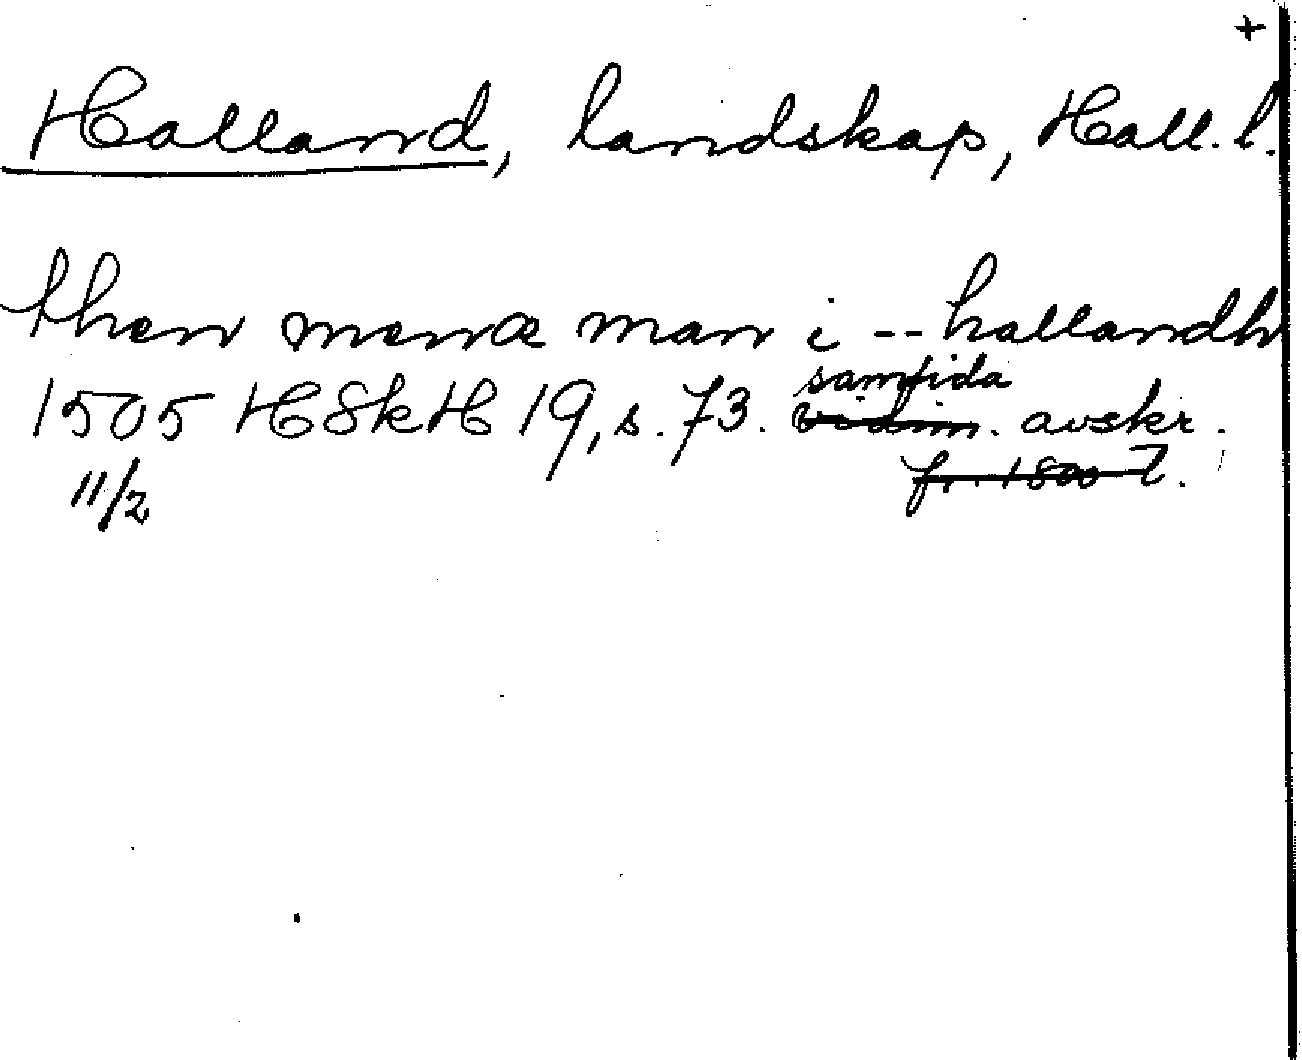 +
Halland, landskap, Hall. l.
then menæ man i -- hallandh
samtida
1505 HSkH 19, s. 73. vidim. avskr.
11/2 fr. 1800-t.